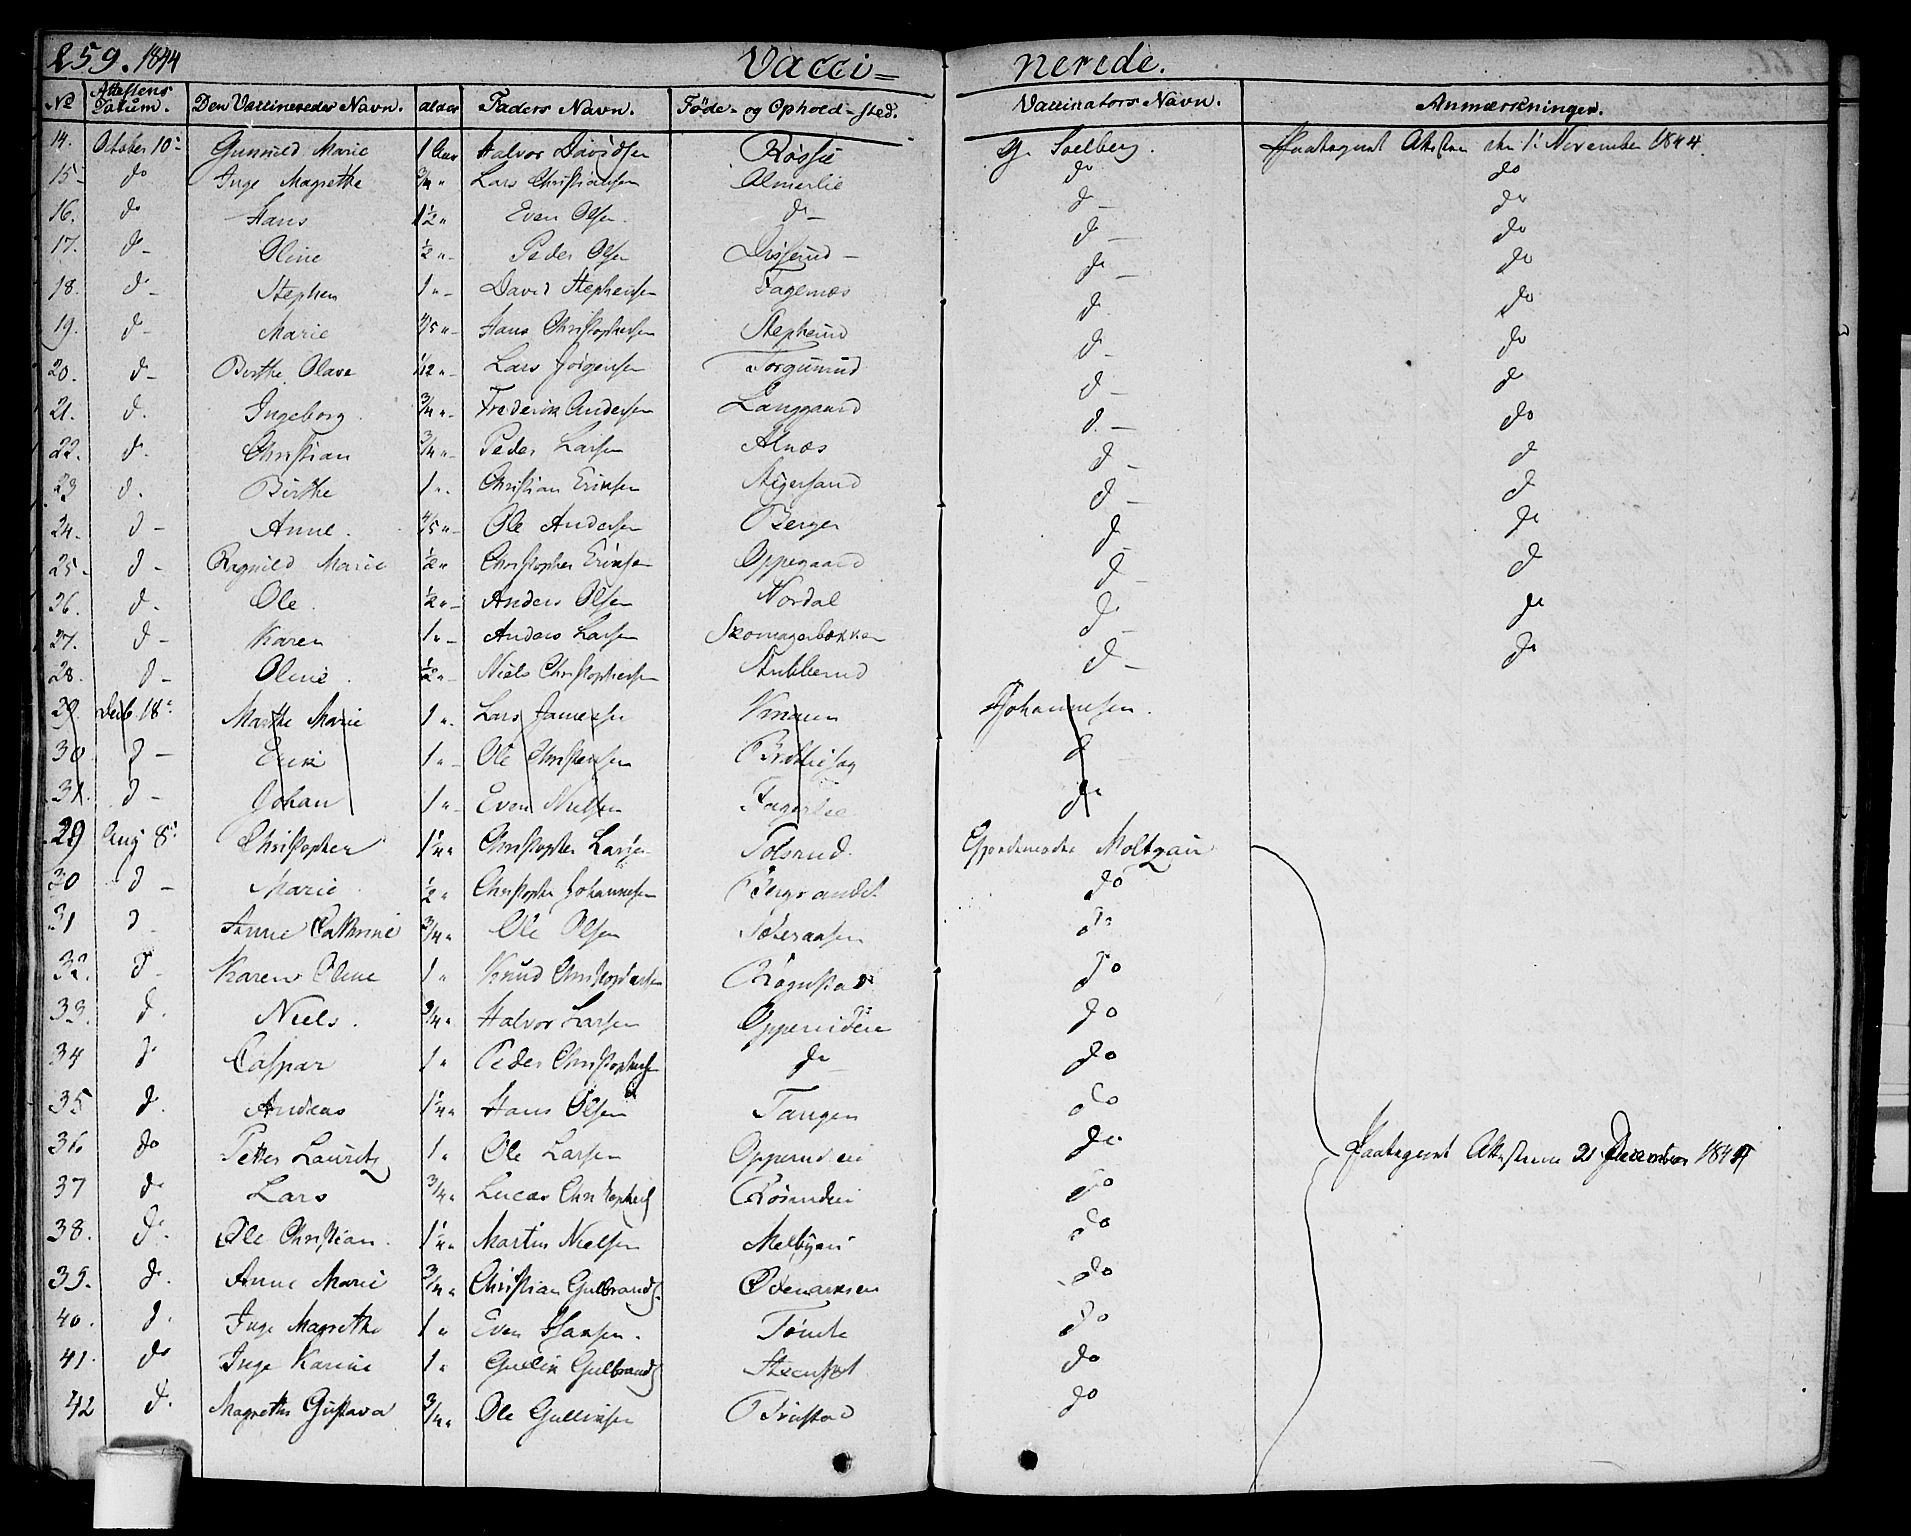 259. 1844 Vacci= nerede.
No Attestens Datum. Den Vaccineredes Navn. Alder Faders Navn. Føde- og Ophold-sted. Vaccinators Navn. Anmærkninger.
14. October 10. Gunnild Marie 1 Aar Halvor Davidsen Røssie G. Soelberg. Paategnet Attesten den 1. November 1844.
15- do Inge Magrethe 3/4 " Lars Christiansen Almerlie do do
16. do Hans 1 1/2 " Even Olsen. do - do - do
17. do - Oline 1/2 " Peder Olsen do - do
18. do - Stephen 1 " David Stephensen Fagernæs do - do
19. do - Marie 4/5 " Hans Christophersen Stepherud do do
20. do - Birthe Olava 1/12 " Lars Jørgensen Torgunrud do - do
21. do. Ingeborg. 3/4 " Frederik Andersen Langgaard do - do
22. do. Christian 3/4 " Peder Larsen Alnæs do - do
23 do. Birthe 1 " Christian Eriksen do - do
24. do - Anne. 4/5 " Ole Andersen Berger do - do
25- do - Ragnild Marie 1/2 " Christopher Eriksen Oppegaard do do
26. do - Ole. 1/2 " Anders Olsen Nordal do - do
27. do - Karen 1 " Anders Larsen Skomagerbakken do do
28. do - Oline. 1/2 " Niels Christophersen Stubberud do - do
29 Decb 18. Marthe Marie 1 " Lars Jansen Johannesen.
30 do - Erik 1 " Ole Christensen do
31. do - Johan 1 " Even Nielsen Fagerlie do
29 Aug 8. Christopher 1 1/4 " Christopher Larsen Tolsrud. Gjordemoder Moltzau
30 do - Marie 1/2 " Christopher Johannesen do
31 do - Anne Cathrine 3/4 " Ole Olsen do
32. do - Karen Oline 1 " Knud Christophersen Røgnstad do
33. do. Niels. 3/4 " Halvor Larsen do
34 do Caspar 1 " Peder Christophers do - do
35 do. Andreas 1 1/4 " Hans Olsen Tangen do
36. do Petter Lauritz 1 " Ole Larsen do Paategnet Attesterne 21 December 1844
37 do Lars 3/4 " Lucas Christophers do
38. do. Ole Christian. 1 1/4 " Martin Nielsen do
39. do. Anne Marie 3/4 " Christian Gulbrands. do
40. do. Inge Magrethe 1 " Even Hansen. Tømte do
41. do Inge Karine 1 " Gullik Gulbrands do
42 do. Magrethe Gustava 3/4 " Ole Gulliksen do